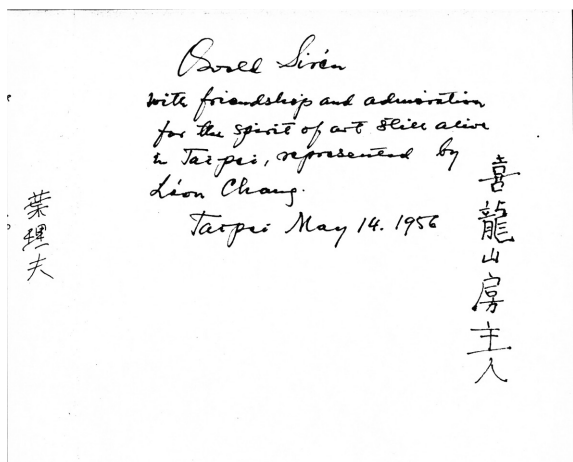 Osvald Sirén
with friendship and admiration
for the spirit of art still alive
in Taipei, represented by
Léon Chang.
Taipei May 14. 1956
喜龍山房主人
葉理夫